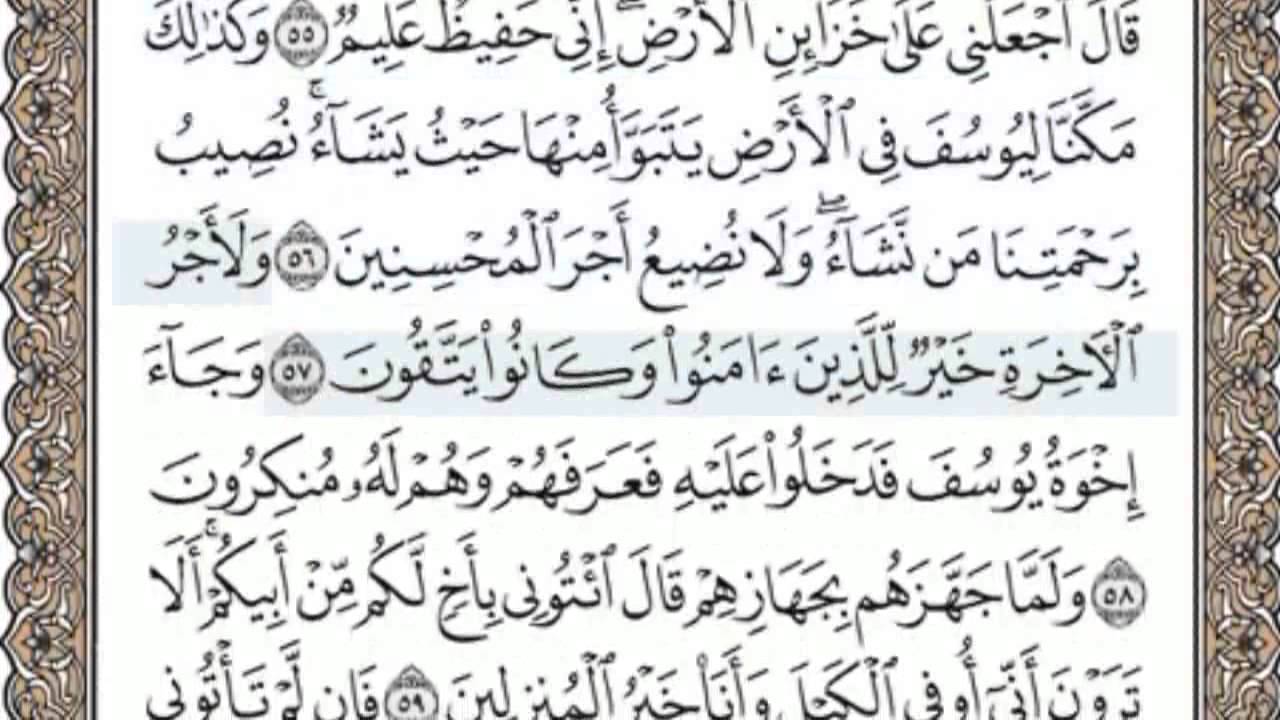 قَالَ ٱجۡعَلۡنِي عَلَىٰ خَزَآئِنِ ٱلۡأَرۡضِۖ إِنِّي حَفِيظٌ عَلِيمٞ ٥٥ وَكَذَٰلِكَ
مَكَّنَّا لِيُوسُفَ فِي ٱلۡأَرۡضِ يَتَبَوَّأُ مِنۡهَا حَيۡثُ يَشَآءُۚ نُصِيبُ
بِرَحۡمَتِنَا مَن نَّشَآءُۖ وَلَا نُضِيعُ أَجۡرَ ٱلۡمُحۡسِنِينَ ٥٦ وَلَأَجۡرُ
ٱلۡأٓخِرَةِ خَيۡرٞ لِّلَّذِينَ ءَامَنُواْ وَكَانُواْ يَتَّقُونَ ٥٧ وَجَآءَ
إِخۡوَةُ يُوسُفَ فَدَخَلُواْ عَلَيۡهِ فَعَرَفَهُمۡ وَهُمۡ لَهُۥ مُنكِرُونَ
٥٨ وَلَمَّا جَهَّزَهُم بِجَهَازِهِمۡ قَالَ ٱئۡتُونِي بِأَخٖ لَّكُم مِّنۡ أَبِيكُمۡۚ أَلَا
تَرَوۡنَ أَنِّيٓ أُوفِي ٱلۡكَيۡلَ وَأَنَا۠ خَيۡرُ ٱلۡمُنزِلِينَ ٥٩ فَإِن لَّمۡ تَأۡتُونِي